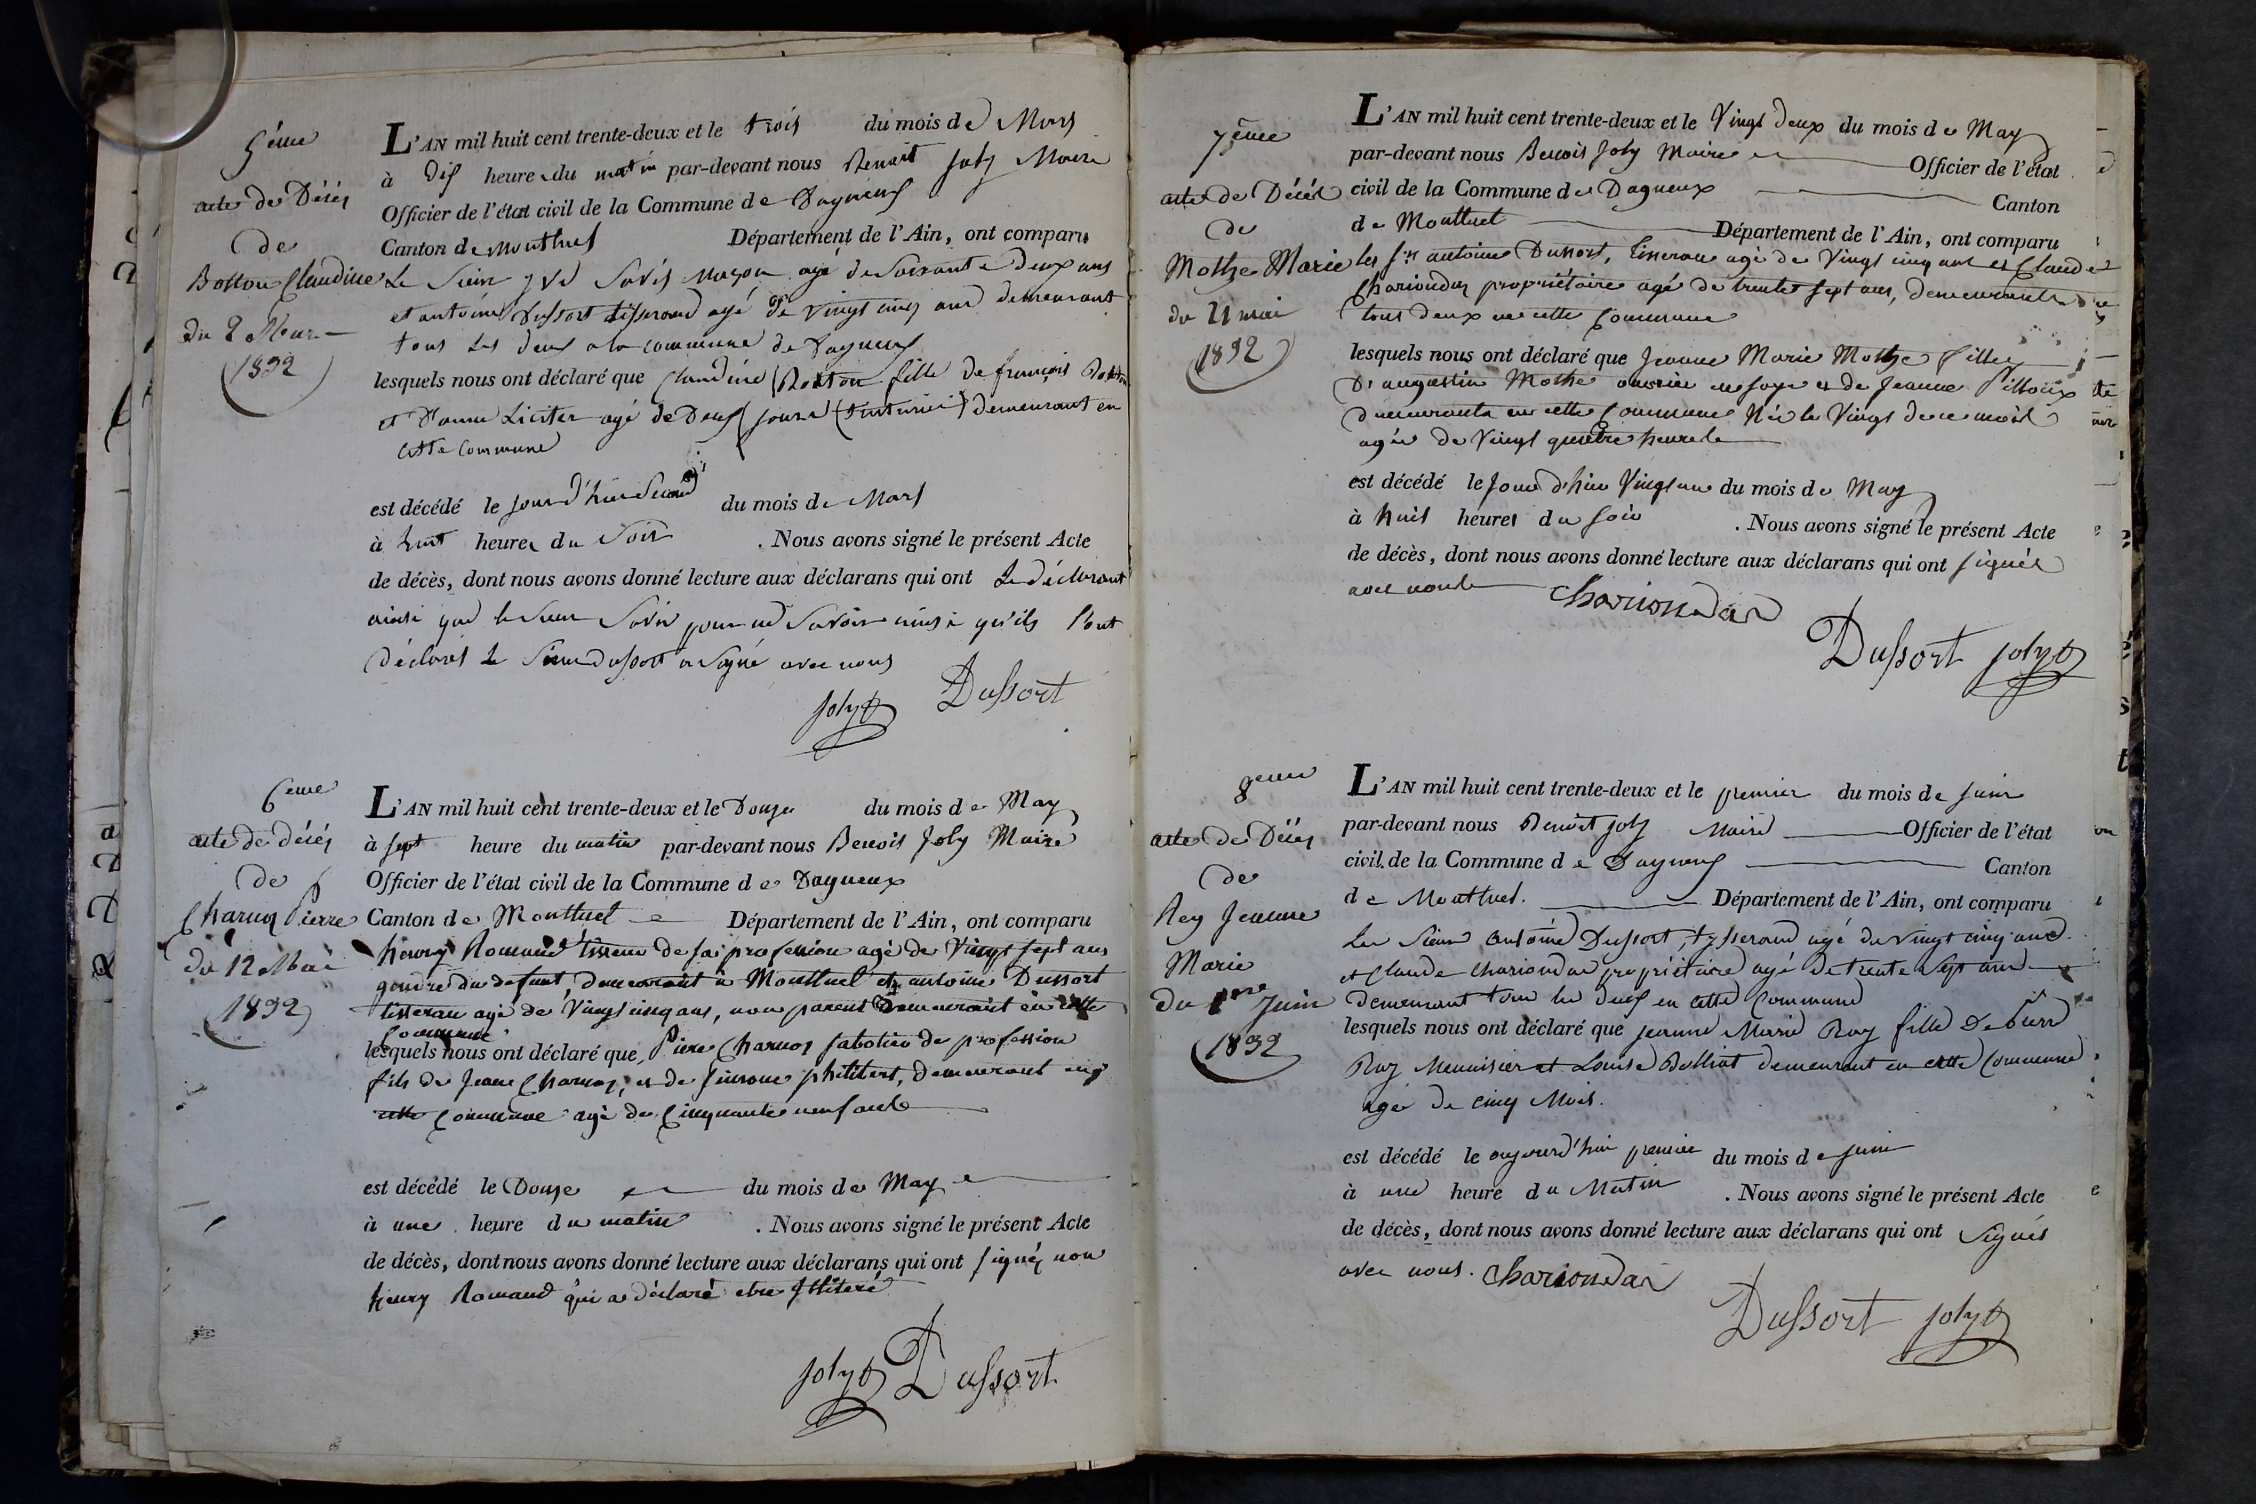 5ème
acte de Décés
de
Botton Claudine
du 2 Mars
1832
L'AN mil huit cent trente-deux et le trois du mois de Mars
à dix heures du matin par-devant nous Benoit Joly Maire
Officier de l'état civil de la Commune de Dagneux
Canton de Montluel Département de l'Ain, ont comparu
Le Sieur Savis maçon agé de Soixante deux ans
et antoine Dussort tisserand agé de vingt cinq ans demeurant
tous les deux a la commune de Dagneux
lesquels nous ont déclaré que Claudine Botton fille de françois Botton
et d'anne Liciter agé de Deux jours demeurant en
cette commune
est décédé le jour d'hier Second du mois de Mars
à huit heures du Soir . Nous avons signé le présent Acte
de décès, dont nous avons donné lecture aux déclarans qui ont Le déclarant
ainsi que le Sieur Savis pour ne Savoir ainsi qu'ils l'ont
déclarés Le Sieur dussort a Signé avec nous
Joly Dussort
6eme
acte de décés
de
Charnoz Pierre
du 12 Mai
1832
L'AN mil huit cent trente-deux et le Douze du mois de May
à sept heure du matin par-devant nous Benois Joly Maire
Officier de l'état civil de la Commune de Dagneux
Canton de Montluel Département de l'Ain, ont comparu
henry Romand tisseur de sa profession agé de Vingt sept ans
gendre du defunt, demeurant à Montluel et antoine Dussort
tisseran agé de Vingt cinq ans, non parent demeurant en cette
Commune
lesquels nous ont déclaré que, Pierre Charnoz sabotier de profession
fils de Jean Charnoz, et de philibert, demeurant en
cette Commune agé de Cinquante neuf ans
est décédé le Douze du mois de May
à une heure du matin . Nous avons signé le présent Acte
de décès, dont nous avons donné lecture aux déclarans qui ont signés non
henry Romand qui a déclaré etre Illiteré
Joly Dussort
7ème
acte de Décès
de
Mothe Marie
du 21 mai
1832
L'AN mil huit cent trente-deux et le Vingt deux du mois de May
par-devant nous Benois Joly Maire Officier de l'état
civil de la Commune de Dagneux Canton
de Montluel Département de l'Ain, ont comparu
les Srs antoine Dussort, tisseran agé de Vingt cinq ans et Claude
Chariondaz propriétaire agé de trente sept ans, demeurants
tous deux en cette Commune
lesquels nous ont déclaré que Jeanne Marie Mothe fille
D'augustin Mothe ouvrier en soye et de Jeanne Pilloux
demeurants en cette Commune Née le Vingt de ce mois
agée de Vingt quatre heures
est décédé le Jour d'hier Vingt un du mois de May
à huit heures du soir . Nous avons signé le présent Acte
de décès, dont nous avons donné lecture aux déclarans qui ont signés
avec nous
Chariondas
Dussort Joly
8eme
acte de Décés
de
Rey Jeanne
Marie
du 1er Juin
1832
L'AN mil huit cent trente-deux et le premier du mois de juin
par-devant nous Benoit Joly Maire Officier de l'état
civil de la Commune de Dagneux Canton
de Montluel. Département de l'Ain, ont comparu
Les Sieur antoine Dussort, tysserand agé de vingt cinq ans
et Claude chariondas propriétaire agé de trente Sept ans
demeurant tous les deux en cette Commune
lesquels nous ont déclaré que jeanne Marie Rey fille de pierre
Rey Menuisier et Louise Bolliat demeurant en cette Commune
agée de cinq Mois.
est décédé le aujourd'hui premier du mois de juin
à une heure du Matin . Nous avons signé le présent Acte
de décès, dont nous avons donné lecture aux déclarans qui ont Signés
avec nous. Chariondas
Dussort Joly